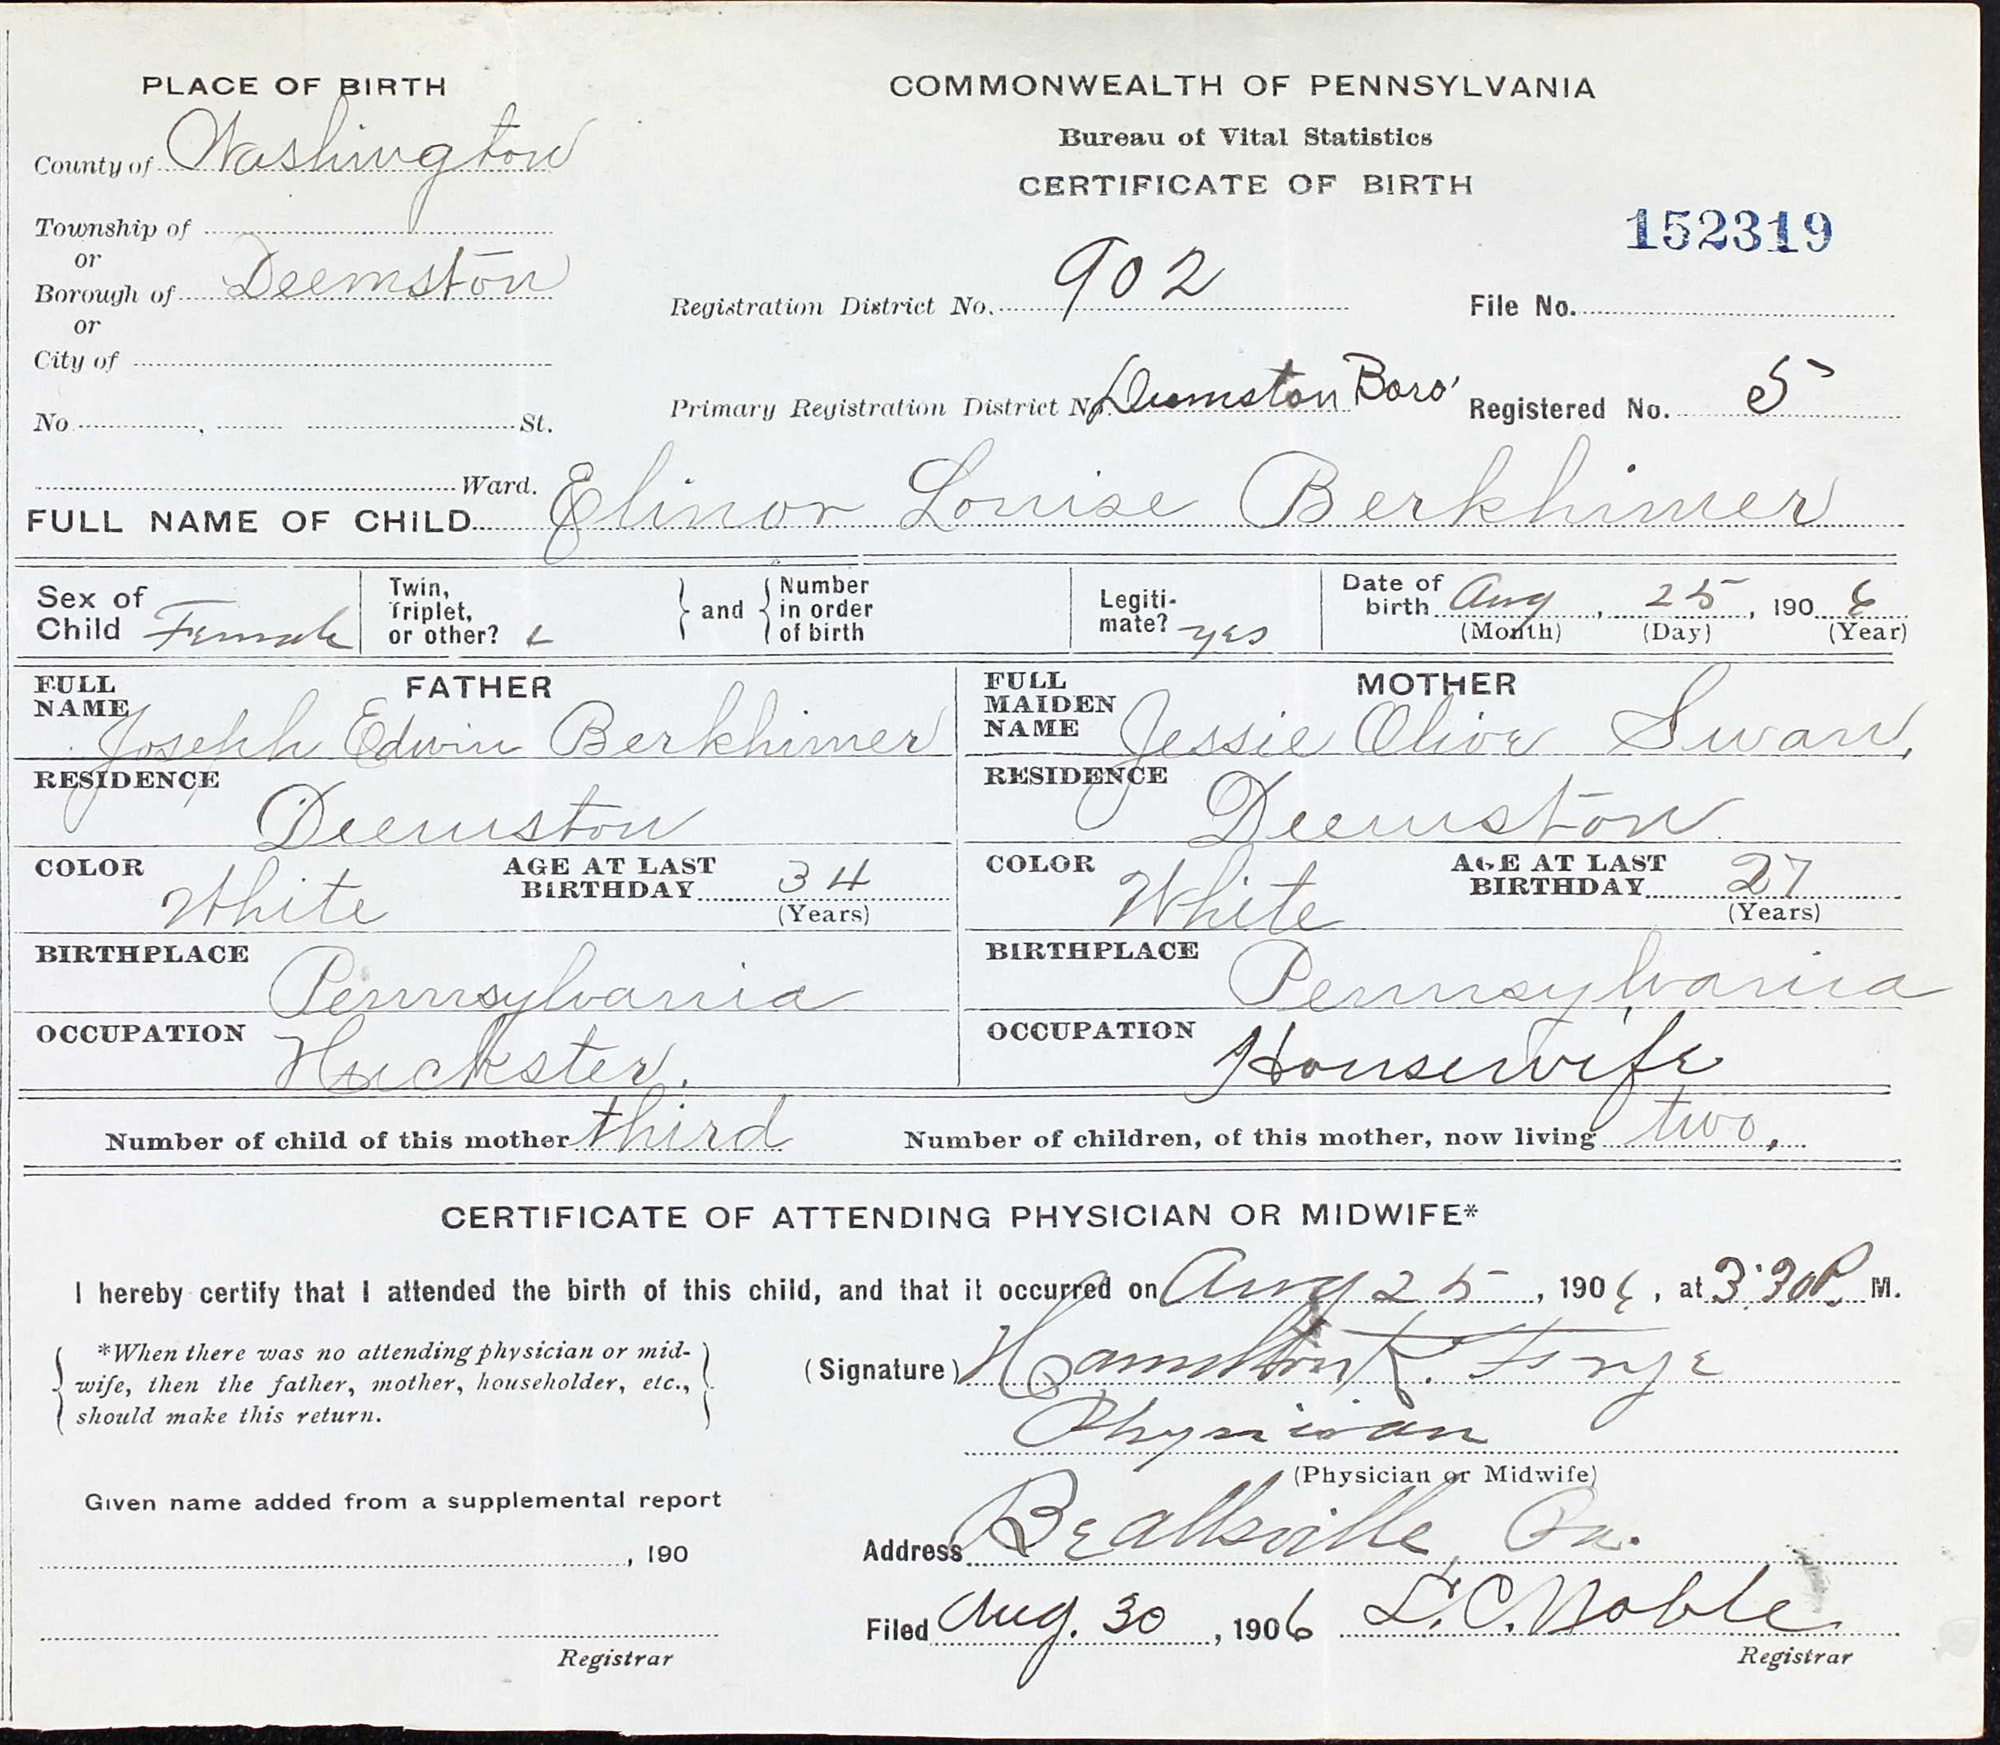 PLACE OF BIRTH
County of Washington
Township of
or
Borough of Deemston
or
City of
No. , St.
Ward.
COMMONWEALTH OF PENNSYLVANIA
Bureau of Vital Statistics
CERTIFICATE OF BIRTH
152319
Registration District No. 902 File No.
Primary Registration District No. Deemston Boro' Registered No. 5
FULL NAME OF CHILD Elinor Louise Berkhimer
Sex of Child Female
Twin, Triplet, or other?
and
Number in order of birth
Legiti- mate? yes
Date of birth Aug , 25 , 1906
(Month) (Day) (Year)
FATHER
FULL NAME Joseph Edwin Berkhimer
RESIDENCE Deemston
COLOR White AGE AT LAST BIRTHDAY 34 (Years)
BIRTHPLACE Pennsylvania
OCCUPATION Huckster.
MOTHER
FULL MAIDEN NAME Jessie Olive Swan,
RESIDENCE Deemston
COLOR White AGE AT LAST BIRTHDAY 27 (Years)
BIRTHPLACE Pennsylvania
OCCUPATION Housewife
Number of child of this mother third Number of children, of this mother, now living two,
CERTIFICATE OF ATTENDING PHYSICIAN OR MIDWIFE*
I hereby certify that I attended the birth of this child, and that it occurred on Aug 25 , 1906 , at 3:30 P. M.
*When there was no attending physician or mid-
wife, then the father, mother, householder, etc.,
should make this return.
(Signature) Hamilton K.
Physician
(Physician or Midwife)
Given name added from a supplemental report
, 190
Registrar
Address Beallsville, Pa.
Filed Aug. 30 , 1906 C. Noble
Registrar